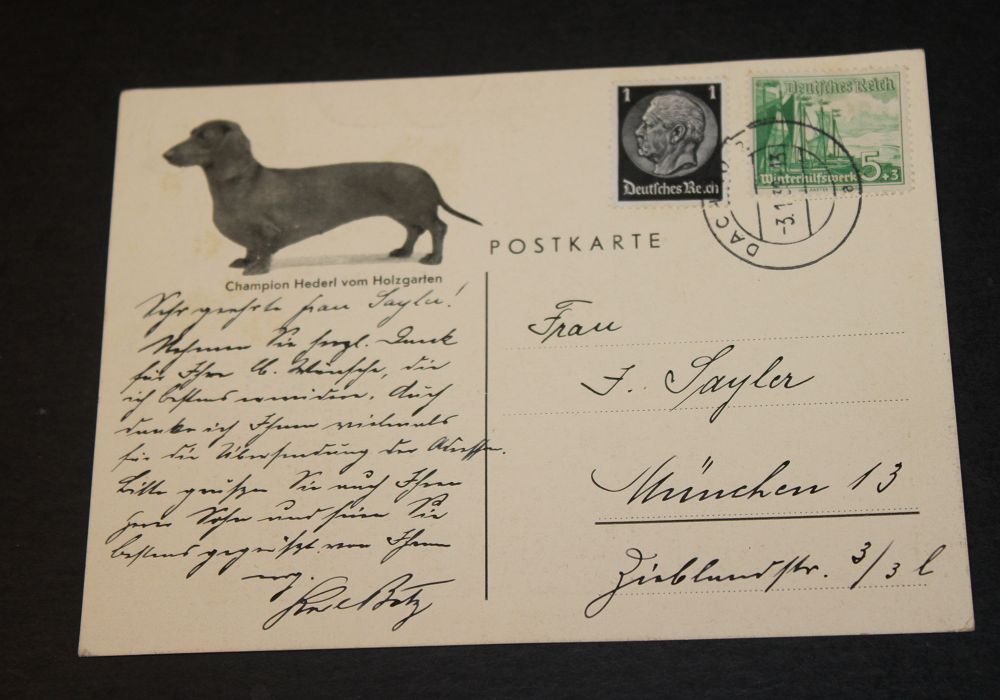 1
1
Deutsches Reich
Deutsches Reich
Winterhilfswerk
5+3
DACH
-3.1.3
POSTKARTE
Champion Hederl vom Holzgarten
Sehr geehrte Frau Sayler!
Nehmen Sie herzl. Dank
für Ihre lb. Wünsche, die
ich bestens erwidere. Auch
danke ich Ihnen vielmals
für die Übersendung der Adresse.
Bitte grüßen Sie auch Ihren
Herrn Sohn und seien Sie
bestens gegrüßt von Ihrem
erg.
Betz
Frau
J. Sayler
München 13
Zieblandstr. 3/3 l